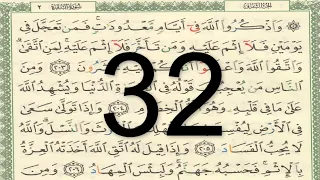 ۞ وَاذْكُرُوا اللَّهَ فِي أَيَّامٍ مَعْدُودَاتٍ فَمَنْ تَعَجَّلَ فِي
يَوْمَيْنِ فَلَا إِثْمَ عَلَيْهِ وَمَنْ تَأَخَّرَ فَلَا إِثْمَ عَلَيْهِ لِمَنِ اتَّقَى
وَاتَّقُوا اللَّهَ ٢٠٣ وَمِنَ
النَّاسِ مَنْ يُعْجِبُكَ قَوْلُهُ فِي الدُّنْيَا وَيُشْهِدُ اللَّهَ
32
عَلَى مَا فِي قَلْبِهِ وَهُوَ الْخِصَامِ ٢٠٤ وَإِذَا تَوَلَّى سَعَى
فِي الْأَرْضِ لِيُفْسِدَ الْحَرْثَ وَالنَّسْلَ وَاللَّهُ
لَا يُحِبُّ الْفَسَادَ ٢٠٥ وَإِذَا قِيلَ لَهُ اتَّقِ اللَّهَ أَخَذَتْهُ الْعِزَّةُ
بِالْإِثْمِ فَحَسْبُهُ جَهَنَّمُ وَلَبِئْسَ الْمِهَادُ ٢٠٦ وَمِنَ